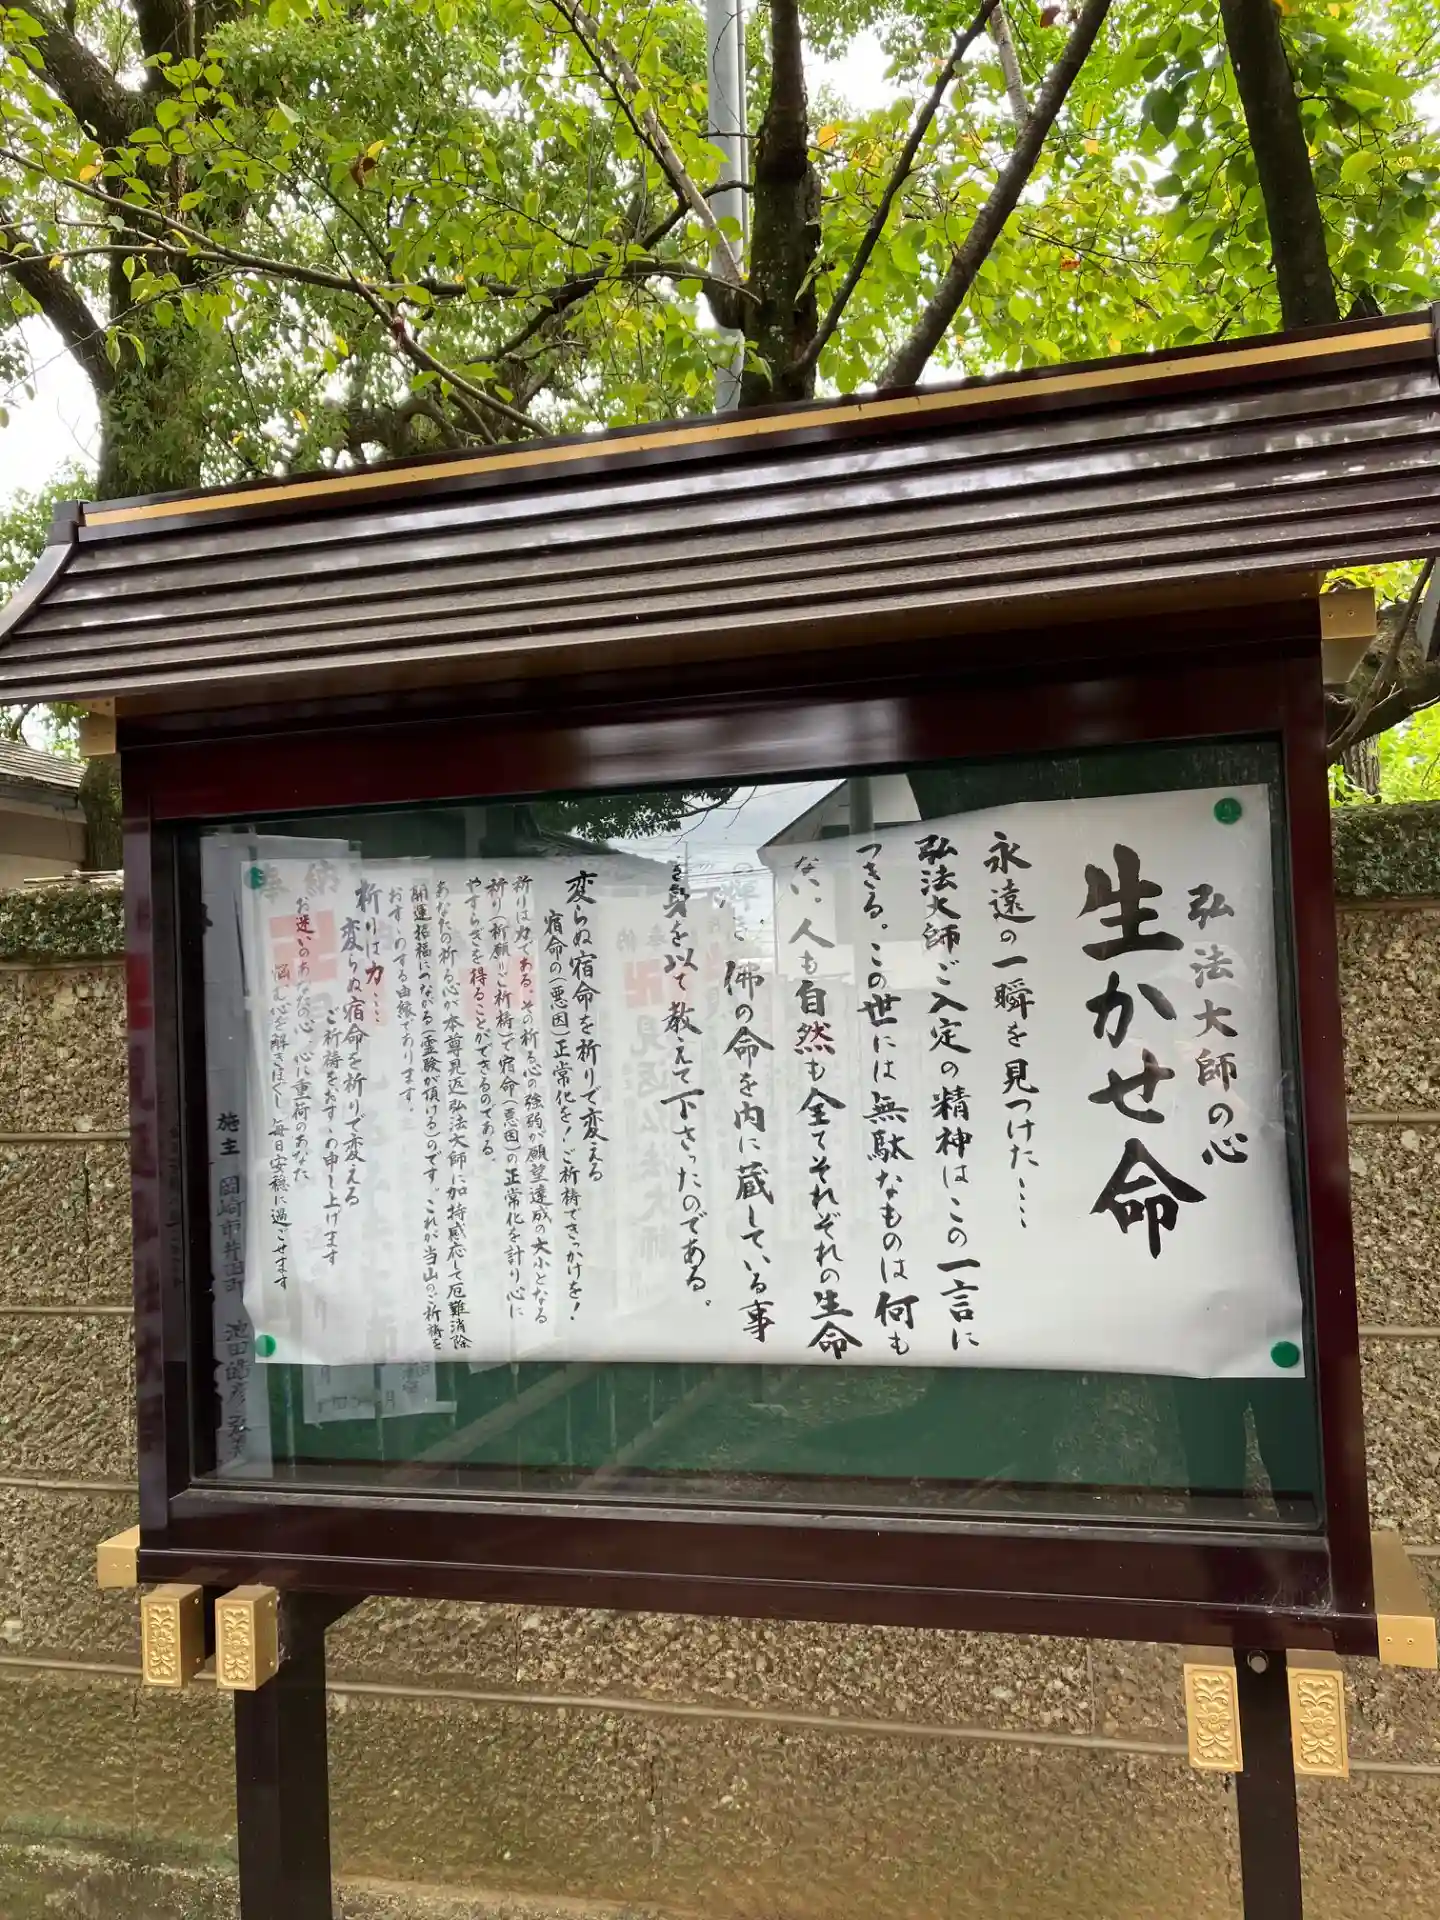 弘法大師の心
生かせ命
永遠の一瞬を見つけた……
弘法大師ご入定の精神はこの一言に
つきる。この世には無駄なものは何も
ない、人も自然も全てそれぞれの生命
佛の命を内に蔵している事
を身を以て教えて下さったのである。
変らぬ宿命を祈りで変える
宿命の(悪因)正常化を!ご祈祷できっかけを!
祈りは力である。その祈る心の強弱が願望達成の大小となる
祈り(祈願)ご祈祷で宿命(悪因)の正常化を計り心に
やすらぎを得ることができるのである。
あなたの祈る心が本尊見返弘法大師に加持感応して厄難消除
開運招福につながる(霊験が頂ける)のです。これが当山のご祈祷を
おすゝめする由縁であります。
祈りは力……
変らぬ宿命を祈りで変える
ご祈祷をおすゝめ申し上げます
お迷いのあなたの心、心に重荷のあなた
悩む心を解きほぐし毎日安穏に過ごせます
見返弘法大師
奉納
施主 岡崎市井田町 池田